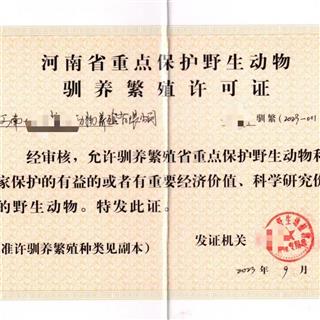 河南省重点保护野生动物
驯养繁殖许可证
驯繁(2023-001
经审核，允许驯养繁殖省重点保护野生动物和
家保护的有益的或者有重要经济价值、科学研究价
的野生动物。特发此证。
准许驯养繁殖种类见副本)
发证机关
2023 年 9 月